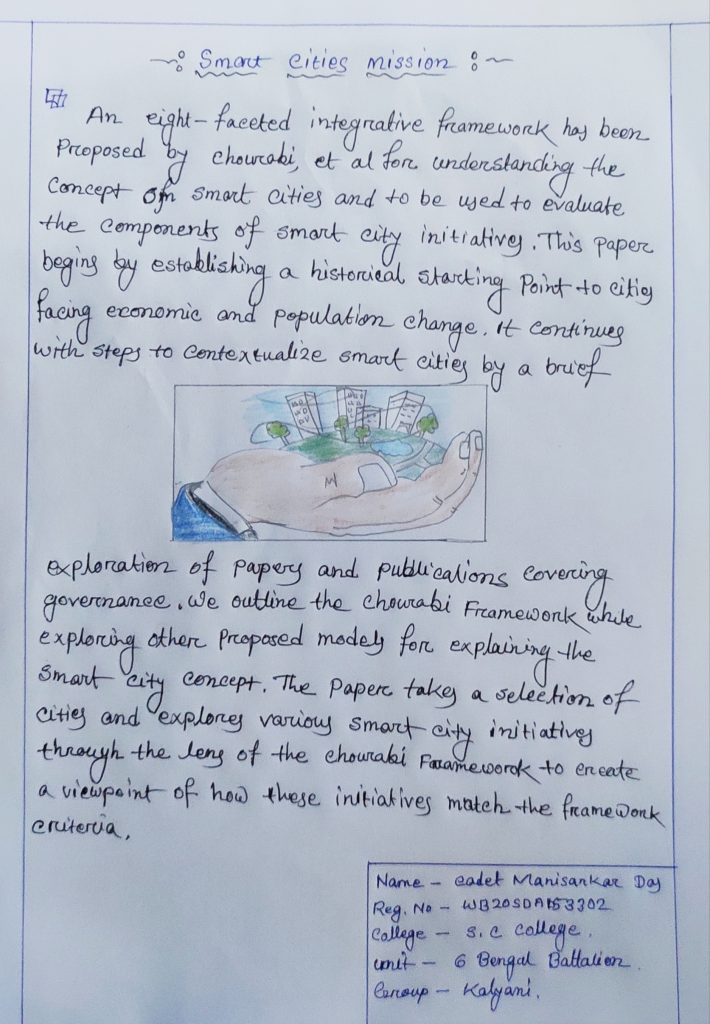 Smart Cities mission
An eight-faceted integrative framework has been
Proposed by chourabi, et al for understanding the
Concept of smart cities and to be used to evaluate
the components of smart city initiatives. This paper
begins by establishing a historical starting Point to cities
facing economic and population change. It continues
with steps to contextualize smart cities by a brief
exploration of papers and publications covering
governance. We outline the chourabi Framework while
exploring other Proposed models for explaining the
Smart city concept. The Paper takes a selection of
cities and explores various smart city initiatives
through the lens of the chourabi Framework to create
a viewpoint of how these initiatives match the framework
criteria.
Name - cadet Manisankar Das
Reg. No -
College - S. C College.
unit - 6 Bengal Battalion.
Group - Kalyani.